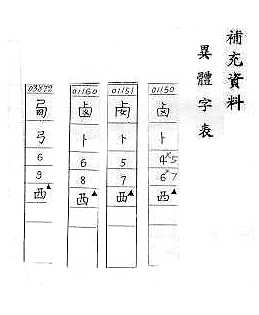 補充資料
異體字表
01150
卤
卜
4 5
6 7
西▲
01151
卜
5
7
西▲
01160
卤
卜
6
8
西▲
03877
弓
6
9
西▲